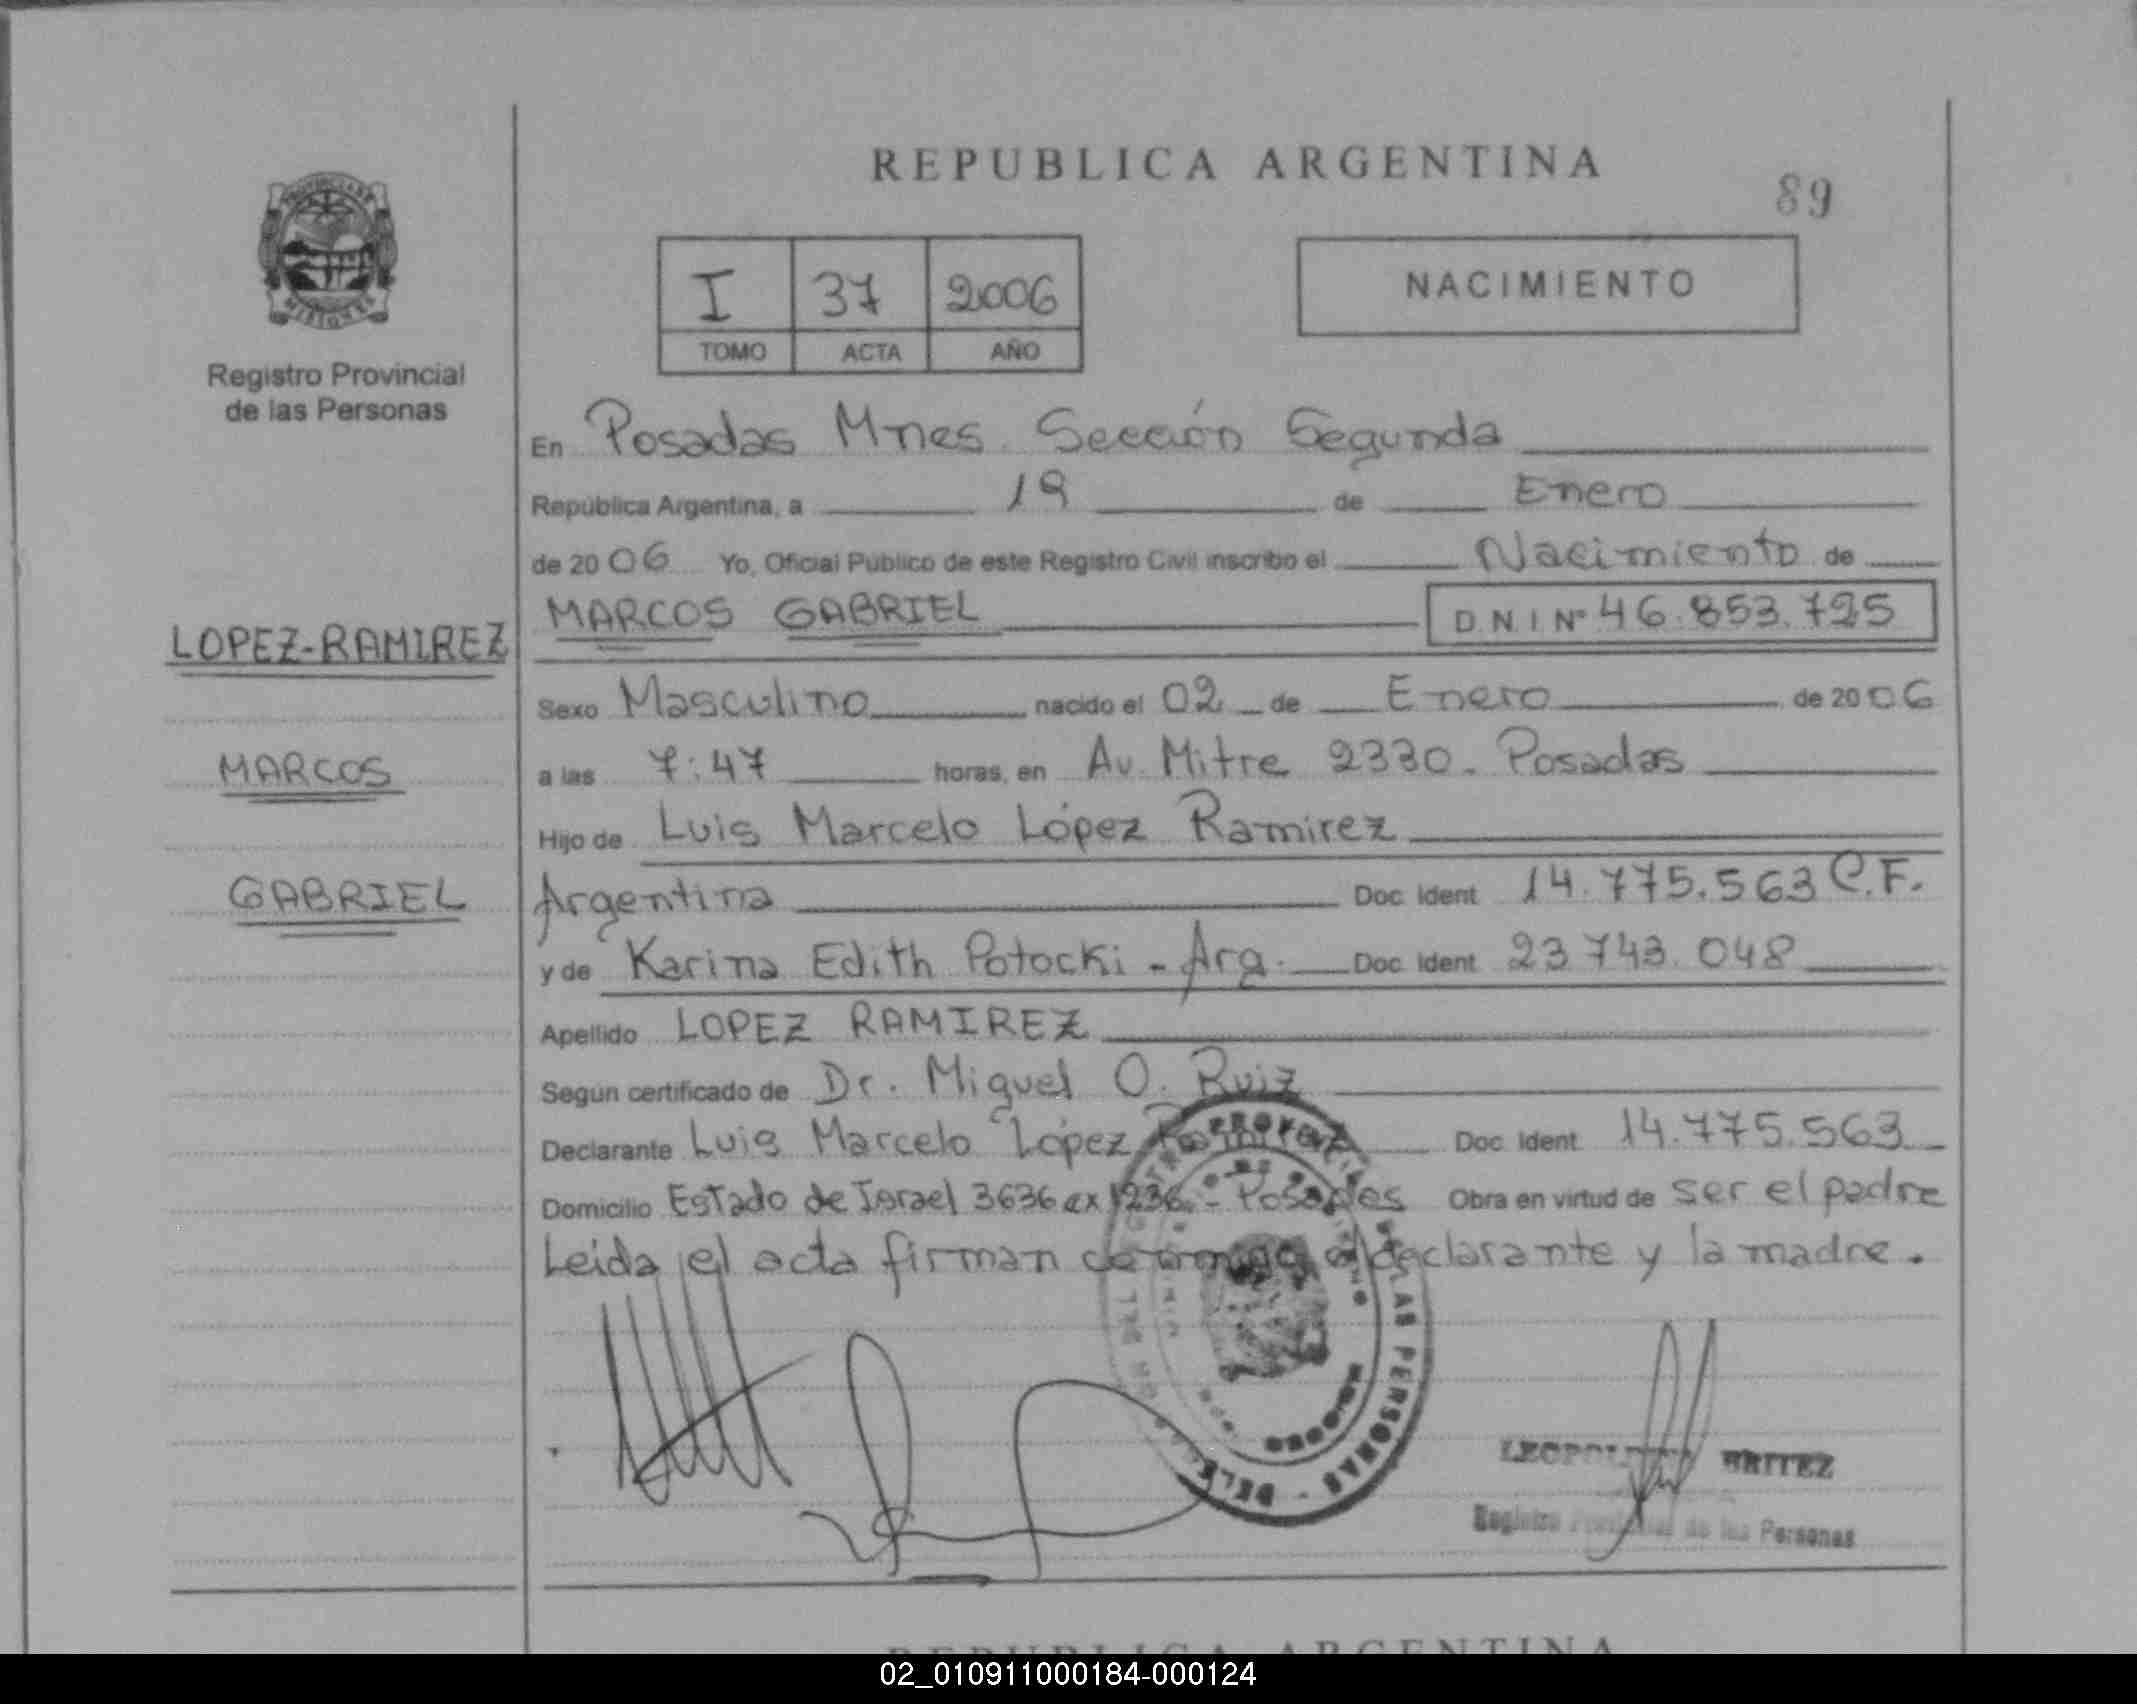 REPUBLICA ARGENTINA
89
I 37 2006
TOMO ACTA AÑO
NACIMIENTO
Registro Provincial
de las Personas
En Posadas Mnes. Sección Segunda
República Argentina, a 19 de Enero
de 2006 Yo, Oficial Publico de este Registro Civil inscribo el Nacimiento de
LOPEZ-RAMIREZ
MARCOS GABRIEL D.N.I Nº 46.853.725
Sexo Masculino nacido el 02 de Enero de 2006
MARCOS
a las 7:47 horas, en Av. Mitre 2330. Posadas
Hijo de Luis Marcelo López Ramirez
GABRIEL
Argentina Doc. Ident. 14.775.563 C.F.
y de Karina Edith Potocki - Arg. Doc. Ident. 23.743.048
Apellido LOPEZ RAMIREZ
Según certificado de Dr. Miguel O. Ruiz
Declarante Luis Marcelo López Doc. Ident. 14.775.563
Domicilio Estado de Israel 3636 ex 1236 - Posadas Obra en virtud de ser el padre
Leida el acta firman conmigo el declarante y la madre.
LAS PERSONAS
BRITEZ
Registro Provincial de las Personas
REPUBLICA ARGENTINA
02_010911000184-000124